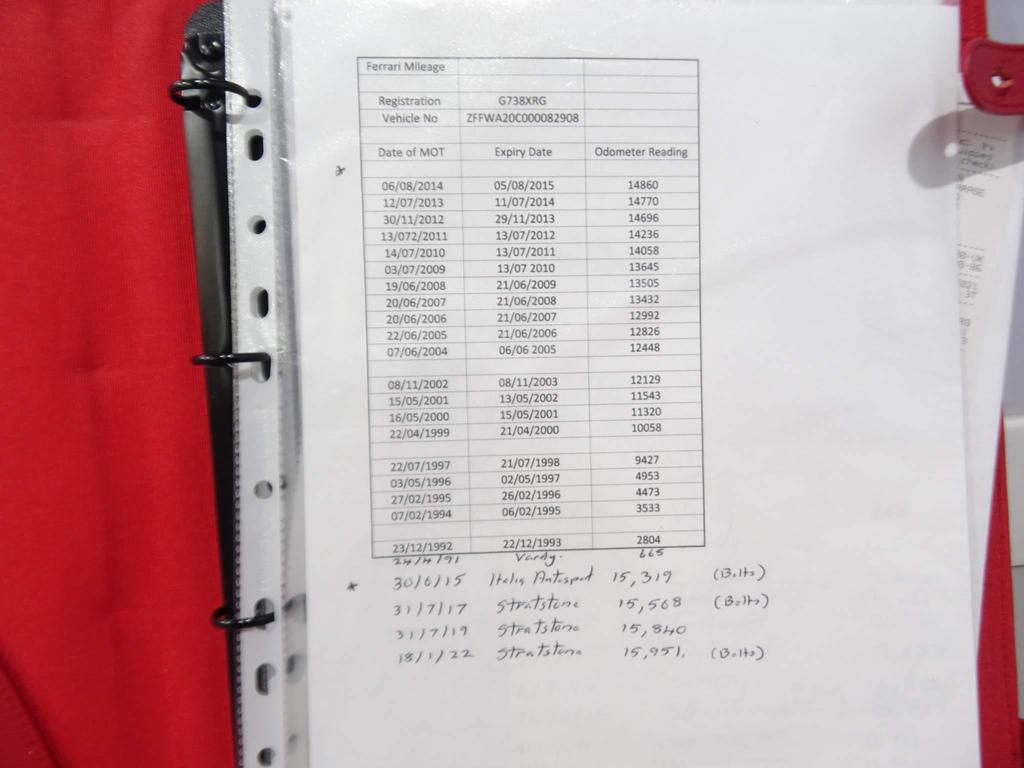 Ferrari Mileage
Registration G738XRG
Vehicle No ZFFWA20C000082908
Date of MOT Expiry Date Odometer Reading
*
06/08/2014 05/08/2015 14860
12/07/2013 11/07/2014 14770
30/11/2012 29/11/2013 14696
13/072/2011 13/07/2012 14236
14/07/2010 13/07/2011 14058
03/07/2009 13/07 2010 13645
19/06/2008 21/06/2009 13505
20/06/2007 21/06/2008 13432
20/06/2006 21/06/2007 12992
22/06/2005 21/06/2006 12826
07/06/2004 06/06 2005 12448
08/11/2002 08/11/2003 12129
15/05/2001 13/05/2002 11543
16/05/2000 15/05/2001 11320
22/04/1999 21/04/2000 10058
22/07/1997 21/07/1998 9427
03/05/1996 02/05/1997 4953
27/02/1995 26/02/1996 4473
07/02/1994 06/02/1995 3533
23/12/1992 22/12/1993 2804
24/4/91 Vardy. 665
* 30/6/15 Italia Autosport 15,319 (Bolts)
31/7/17 Stratstone 15,568 (Bolts)
31/7/19 Stratstone 15,840
18/1/22 Stratstone 15,951. (Bolts)